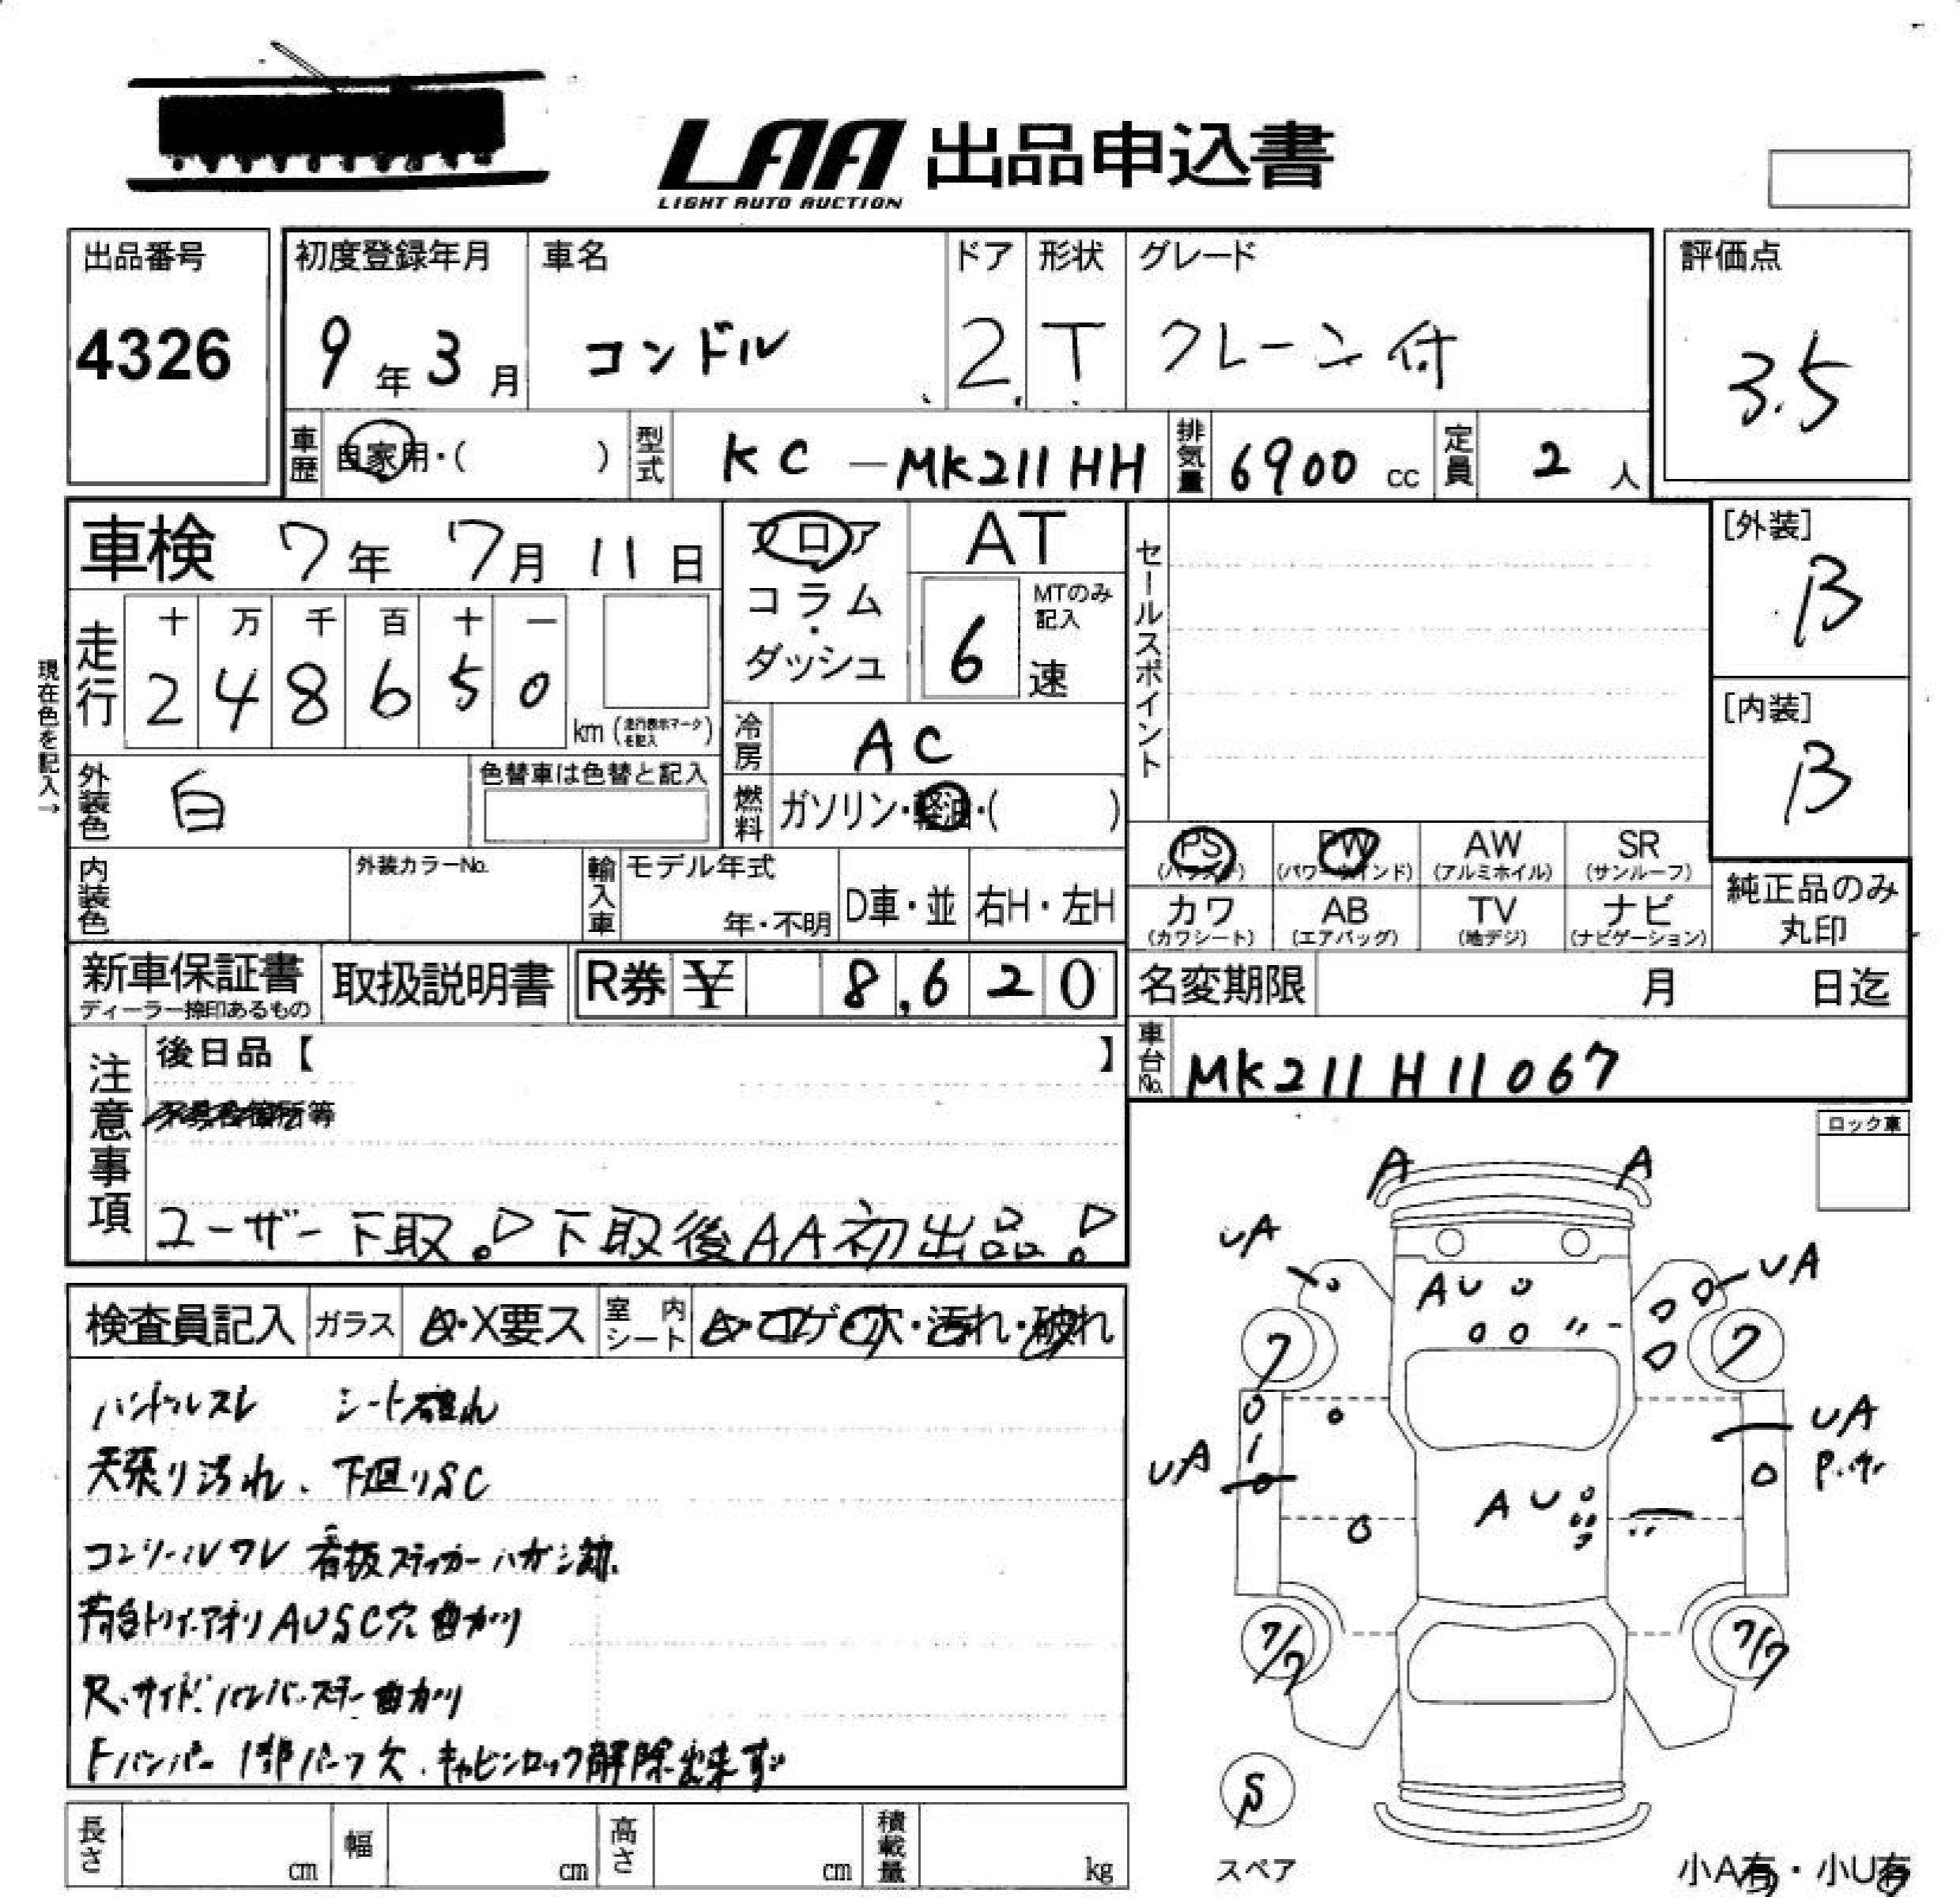 LAA 出品申込書
LIGHT AUTO AUCTION
出品番号
4326
初度登録年月
9年3月
車名
コンドル
ドア
2
形状
T
グレード
クレーン付
評価点
3.5
車歴 自家用・( )
型式 KC-MK211HH
排気量 6900 cc
定員 2 人
車検 7年 7月 11日
フロア・コラム・ダッシュ
AT
MTのみ記入
6速
セールスポイント
[外装]
B
[内装]
B
現在色を記入→
走行
十 万 千 百 十 一
2 4 8 6 5 0
km (走行表示マークを記入)
冷房 AC
外装色 白
色替車は色替と記入
燃料 ガソリン・軽油・( )
内装色
外装カラーNo.
輸入車
モデル年式
年・不明
D車・並
右H・左H
PS (パワステ)
PW (パワーウインド)
AW (アルミホイル)
SR (サンルーフ)
カワ (カワシート)
AB (エアバッグ)
TV (地デジ)
ナビ (ナビゲーション)
純正品のみ丸印
新車保証書
ディーラー捺印あるもの
取扱説明書
R券 ¥ 8,620
名変期限 月 日迄
車台No. MK211H11067
注意事項
後日品【 】
ユーザー下取!! 下取後AA初出品!
ロック車
検査員記入
ガラス A・X要ス
室内シート A・コゲ・穴・汚れ・破れ
ハンドルスレ シート破れ
天張り汚れ、下廻りSC
コンソールワレ 看板ステッカーハガシ跡.
荷台トリイ・アオリ AUSC穴 曲がり
R.サイドバンパーステー曲がり
Fバンパー1部パーツ欠.キャビンロック解除出来ず
A A
UA UA
AU
7 7
UA UA
AU
7/7 7/7
S
スペア
小A有・小U有
長さ cm
幅 cm
高さ cm
積載量 kg